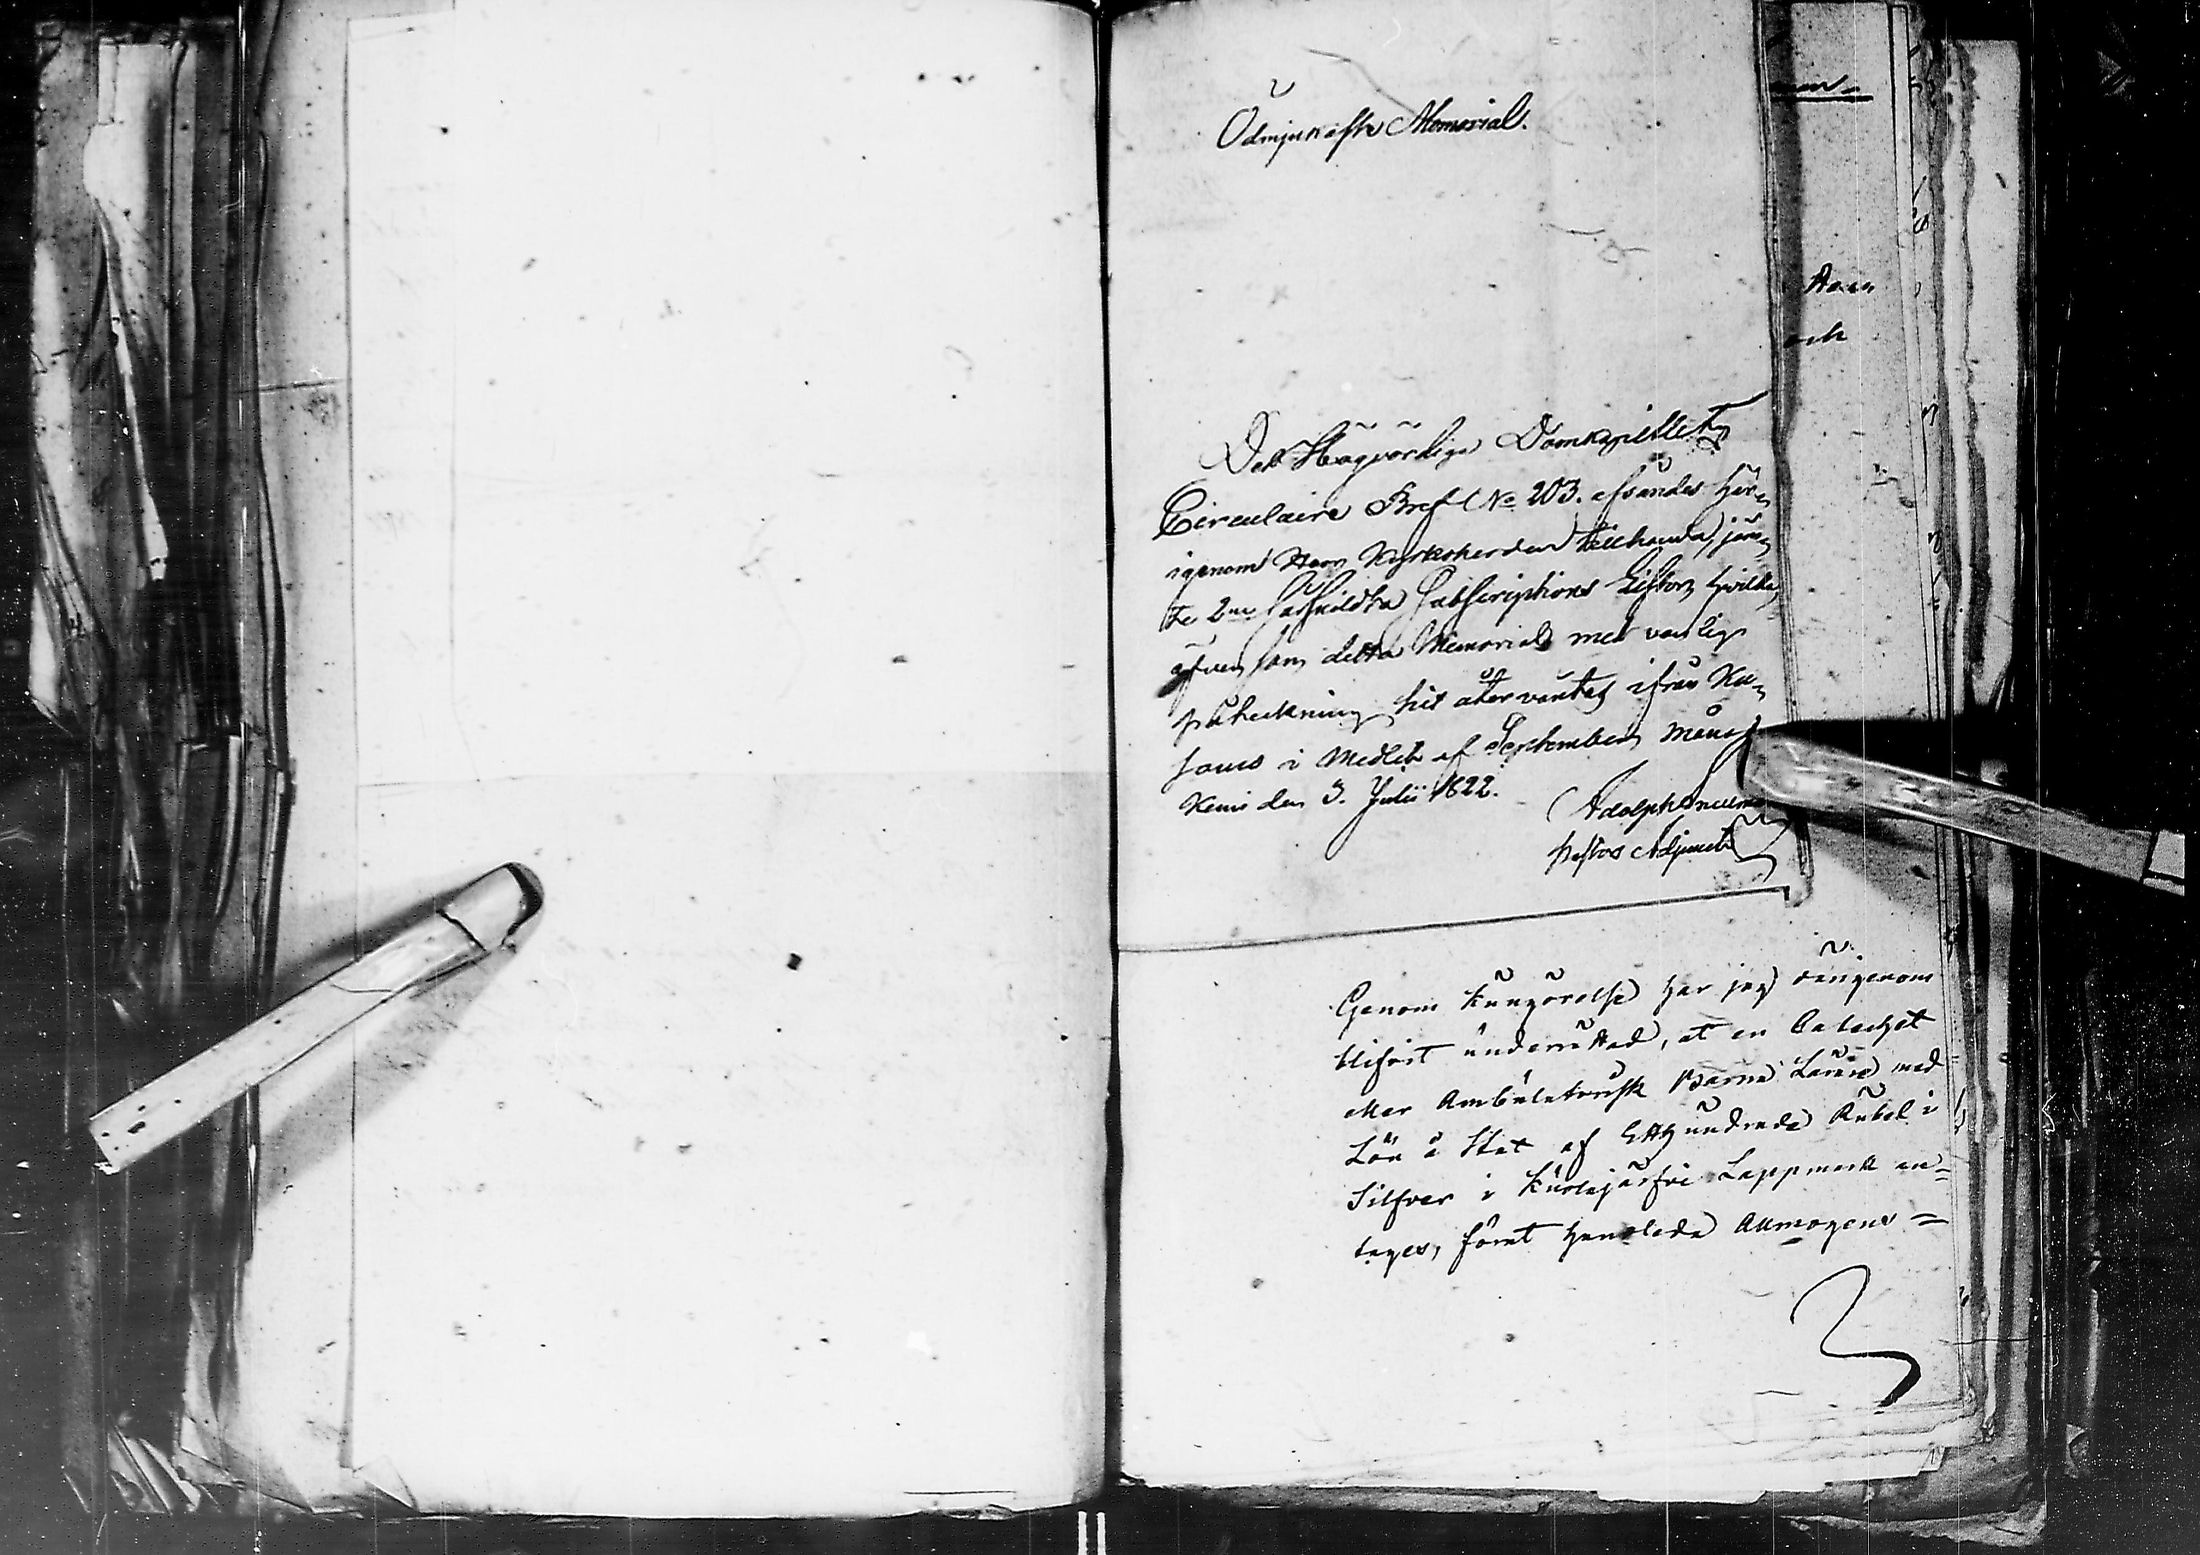 Ödmjukaste Memorial.
Det Högvördige Domkapitlets
Circulaire Bref No 203. afsändes här-
igenom Herr Kyrkoherden tillhanda, jem-
te 2ne särskildta Subscriptions Listor, hvilka,
äfven som detta Memorial med vanlig
påteckning hit återväntas ifrån Ku-
samo i Medlet af September Månad.
Kemi den 3. Julii 1822.
Adolph
pastors Adjunct
Genom Kungörelse har jag
blifvit underrättad, at en Catechet
eller Ambulatorisk Barna Lärare med
Lön å Stat af Etthundrade Rubel i
Silfver i Kuolajärfvi Lappmark an-
tages, först hanleda Allmogens
Herr
och